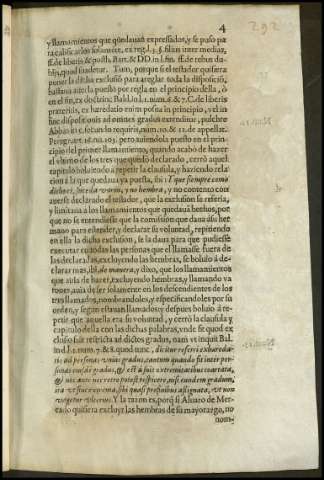 4
292
y llamamientos que quedauan expressados, y se puso pa
ra calificar los solamente, ex reg. l. 3. §. filius inter medias,
ff. de liberis & posth. Bart. & DD. in l. fin. ff. de rebus du-
bijs, quod suadetur. Tum, porque si el testador quisiera
poner la dicha exclusió para arreglar toda la disposició,
bastaua auerla puesto por regla en el principio della, ò
en el fin, ex doctrina Bald. in l. 1. num. 6. & 7. C. de liberis
præteritis, ex hæredatio enim posita in principio, vel in
fine dispositionis ad omnes gradus extenditur, pulchre
Abbas in c. secundo requiris, num. 10. & 12. de appellat.
Peregr. art. 16. nu. 103. pero auiendola puesto en el prin-
cipio del primer llamamiento, quando acabo de hazer
el vltimo de los tres que quedò declarado, cerrò aquel
capitulo boluiendo a repetir la clausula, y haziendo rela-
cion à la que quedaua ya puesta, ibi: Y que siempre como
dicho es, suceda varon, y no hembra, y no contento con
auerse declarado el testador, que la exclusion la referia,
y limitaua à los llamamientos que quedauà hechos, por
que no se entendiesse que la comission que daua a su her
mano para estender, y declarar su voluntad, repitiendo
en ella la dicha exclusion, se la daua para que pudiesse
executar cō todas las personas que el llamasse fuera de
las declaradas, excluyendo las hembras, se boluio à de-
clarar mas, ibi, de manera, y dixo, que los llamamientos
que auia de hazer, excluyendo hembras, y llamando va
rones, auia de ser solamente en los descendientes de los
tres llamados, nombrandolos, y especificandoles por su
orden, y segun estauan llamados; y despues boluio à re-
petir que aquella era su voluntad, y cerrò la clausula y
capitulo della con las dichas palabras, vnde se quod ex
cluso fuit restricta ad dictos gradus, nam vt inquit Bal.
in d. l. 1. num. 7. & 8. quod tunc, dicitur referri exhæreda-
tio ad personas vnius gradus, tantum quando sit inter per-
sonas eiusdē gradus, & est à suis extremitatibus coartata,
& nec ante nec retro potest restrocere, nisi eundem gradum,
ita vt sint extrema, ibi quasi presidibus assignata, vt non
vagetur vlterius. Y la razon es, porq̃ si Aluaro de Mer-
cado quisiera excluyr las hembras de su mayorazgo, no
nom-